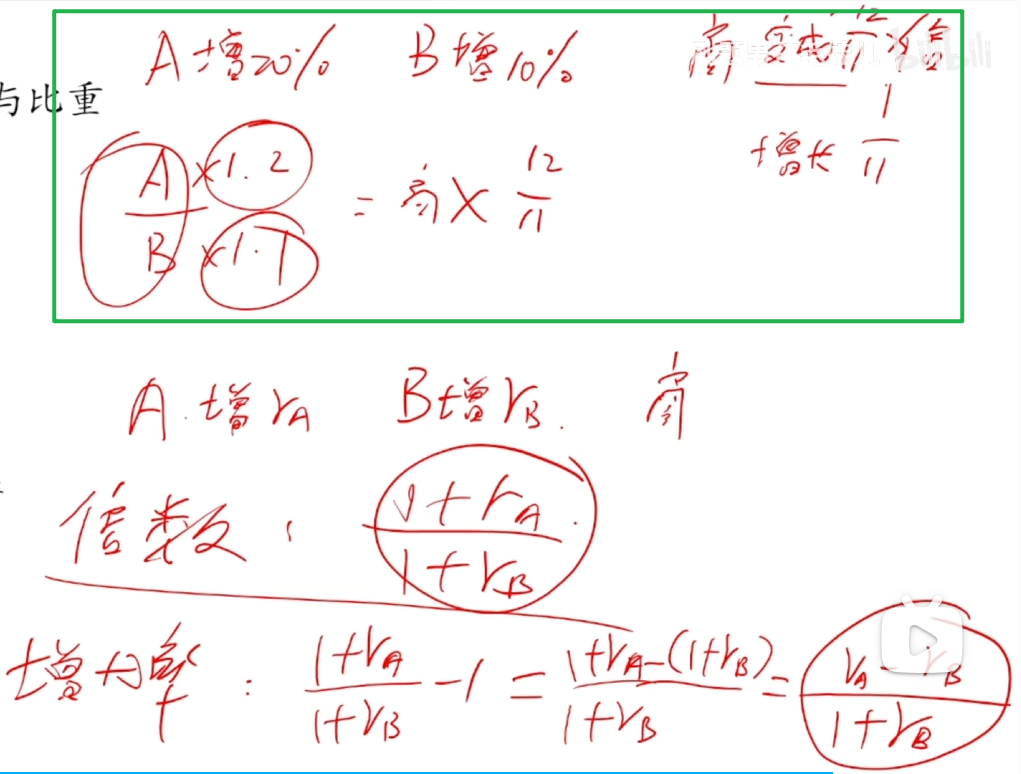 A增20% B增10% 商变成12/11倍
与比重
增长 1/11
(A×1.2)/(B×1.1) = 商× 12/11
A.增rA B增rB. 商
倍数: (1+rA)/(1+rB)
增力率: (1+rA)/(1+rB) -1 = (1+rA-(1+rB))/(1+rB) = (rA-rB)/(1+rB)